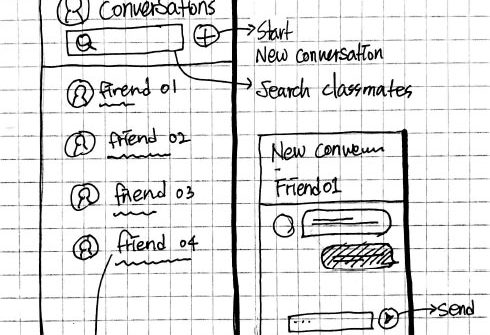 Conversations
Start
New conversation
Search classmates
firend 01
friend 02
friend 03
friend 04
New
Friend01
...
send